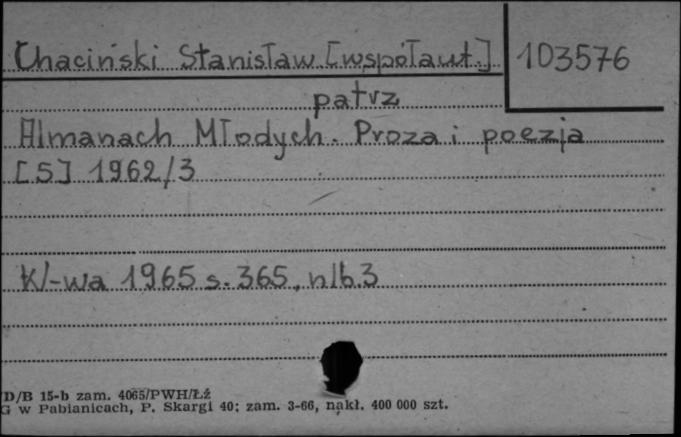 Chaciński Stanisław [współaut.] 103576
patrz
Almanach Młodych. Proza i poezja
[5] 1962/3
W-wa 1965 s. 365, nlb. 3
D/B 15-b zam. 4065/PWH/Łź
G w Pabianicach, P. Skargi 40; zam. 3-66, nakł. 400 000 szt.